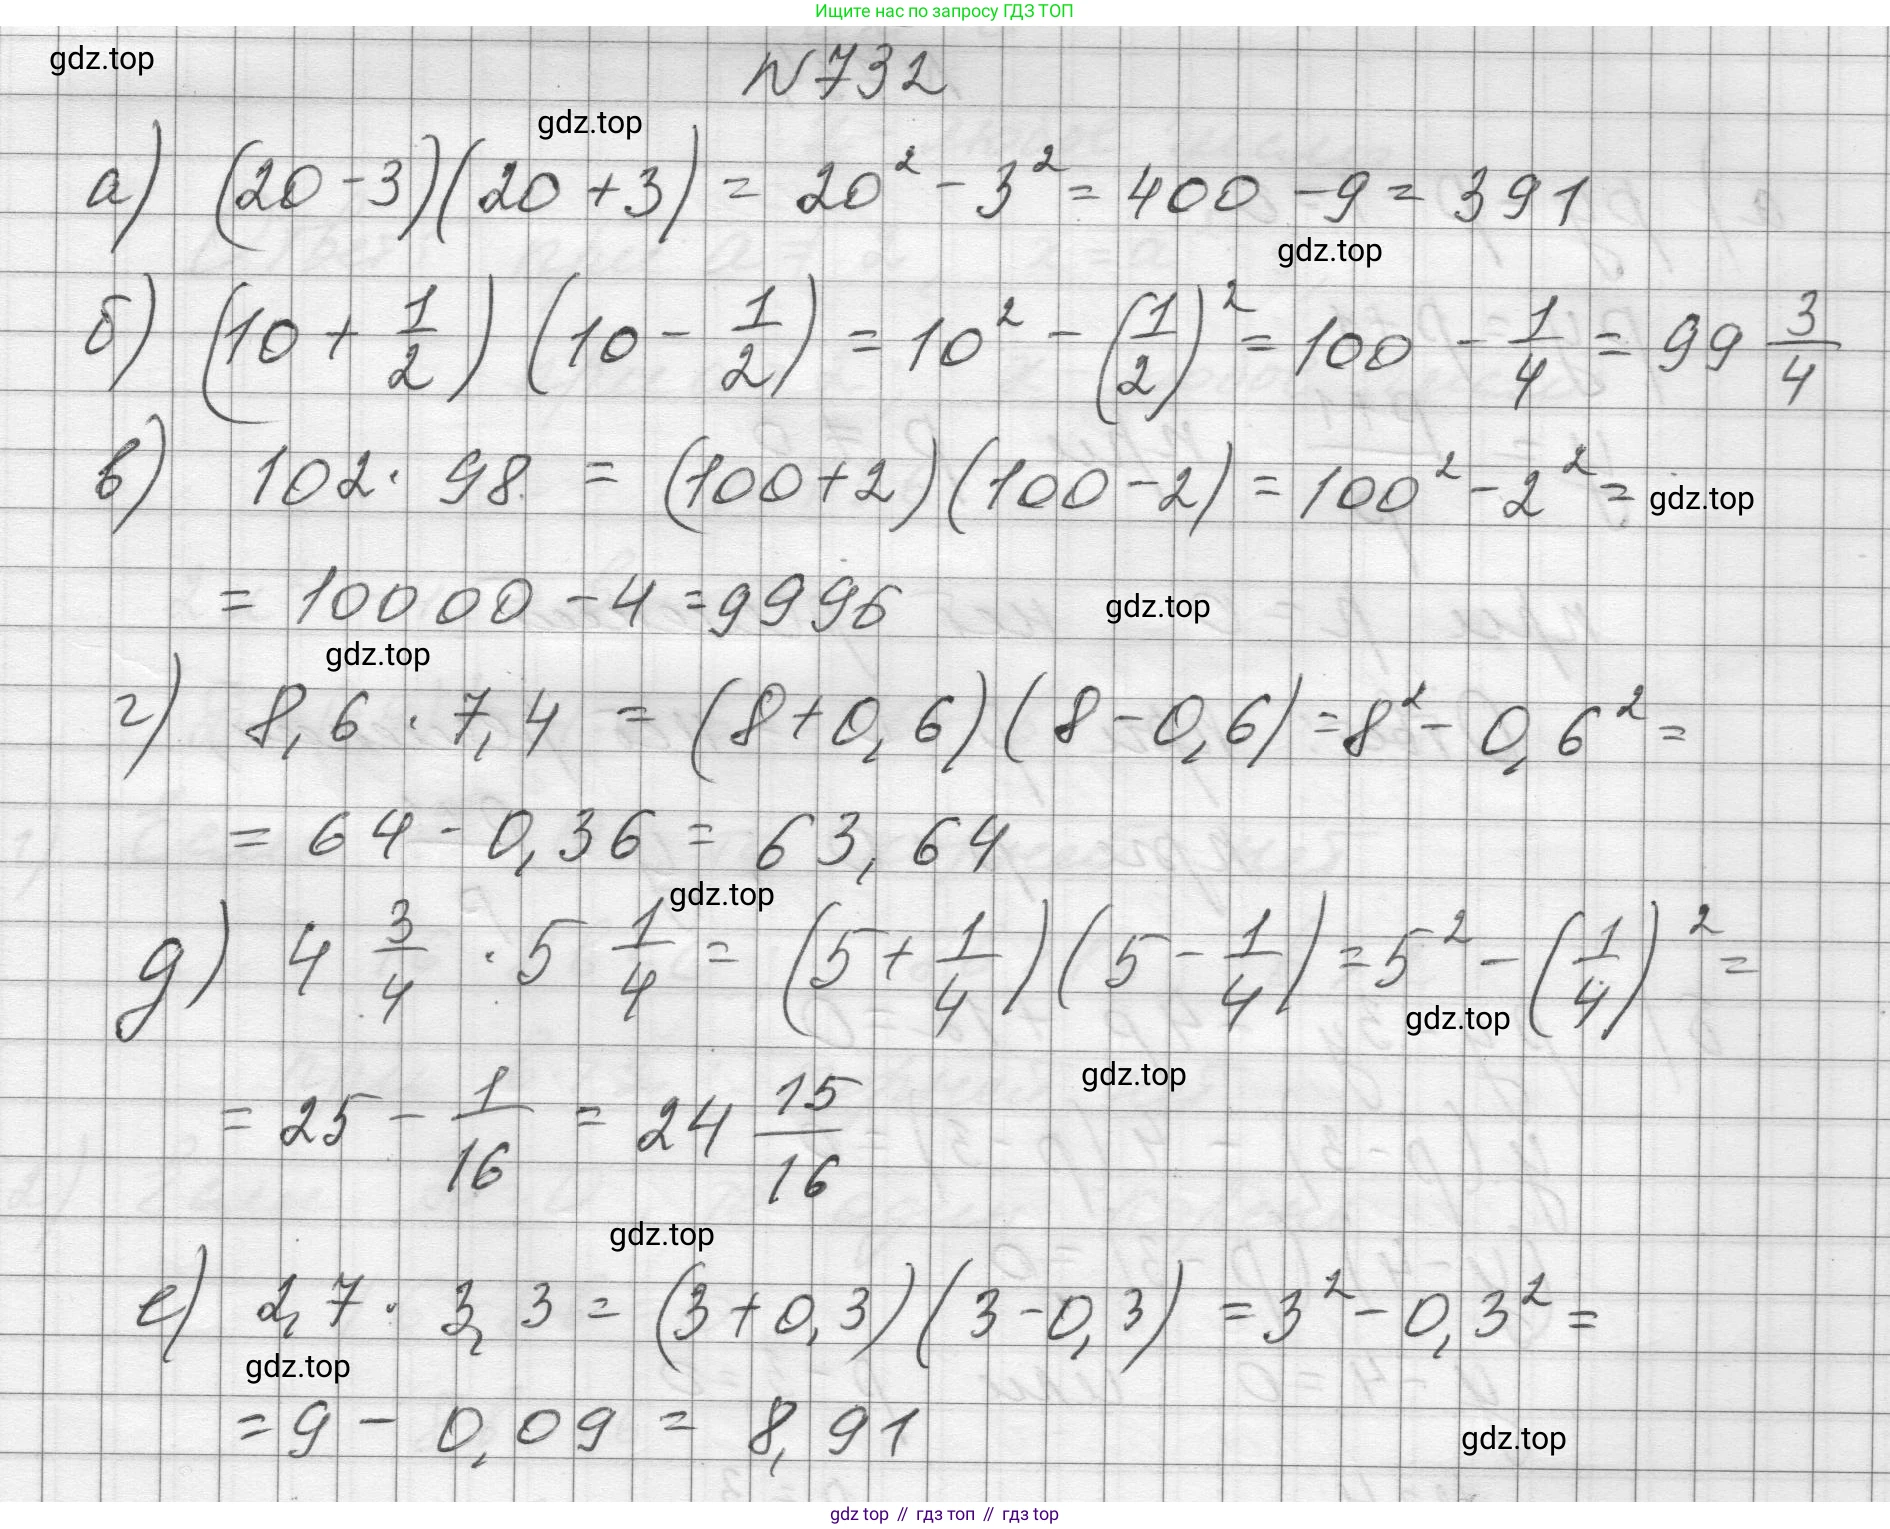 Ищите нас по запросу ГДЗ ТОП
gdz.top
N732
gdz.top
а) (20-3)(20+3) = 20² - 3² = 400 - 9 = 391
gdz.top
б) (10 + 1/2) (10 - 1/2) = 10² - (1/2)² = 100 - 1/4 = 99 3/4
в) 102 · 98 = (100+2)(100-2) = 100² - 2² =
gdz.top
= 10000 - 4 = 9996
gdz.top
gdz.top
г) 8,6 · 7,4 = (8+0,6)(8-0,6) = 8² - 0,6² =
= 64 - 0,36 = 63,64
gdz.top
д) 4 3/4 · 5 1/4 = (5 + 1/4)(5 - 1/4) = 5² - (1/4)² =
gdz.top
gdz.top
= 25 - 1/16 = 24 15/16
gdz.top
е) 2,7 · 3,3 = (3+0,3)(3-0,3) = 3² - 0,3² =
gdz.top
= 9 - 0,09 = 8,91
gdz.top
gdz top // гдз топ // гдз top